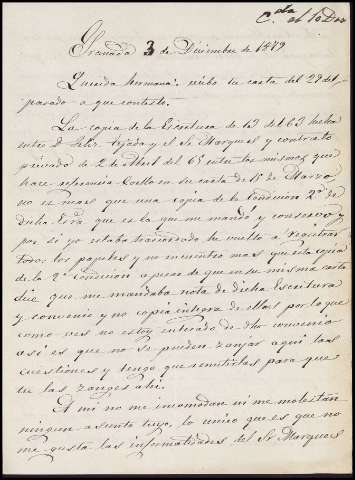 C.da el 10 Dbre
Granada 3 de Diciembre de 1879
Querida hermana: recibo tu carta del 29 del
pasado a que contesto.
La copia de la Escritura de 13 de 63 hecha
entre D. Felix Tejada y el Sr Marques y contrato
privado de 2 de Abril del 65 entre los mismos que
hace referencia Coello en su carta de 15 de Marzo
no es mas que una copia de la condicion 2ª de
dicha Escra que es la que me mandó y conservo y
por si yo estaba trascordado he vuelto a registrar
todos los papeles y no encuentro mas que esta copia
de la 2ª condicion apesar de que en su misma carta
dice que me mandaba nota de dicha Escritura
y convenio y no copia integra de ellos por lo que
como ves no estoy enterado de dho convenio
asi es que no se pueden zanjar aqui las
cuestiones y tengo que remitirlas para que
tu las zanges ahi.
A mi no me incomodan ni me molestan
ningun asunto tuyo, lo unico que es que no
me gusta las informalidades del Sr Marques